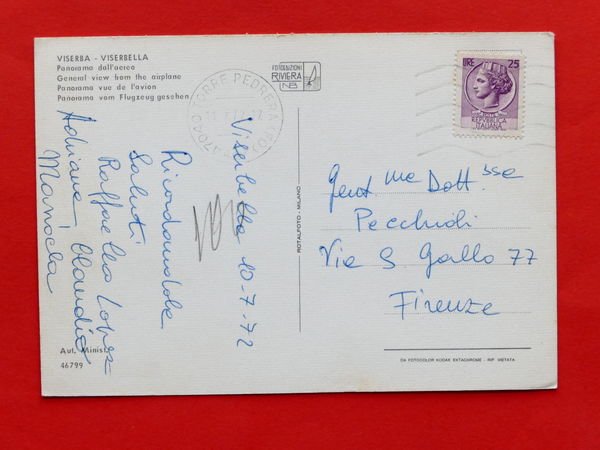 VISERBA - VISERBELLA
Panorama dall'aereo
General view from the airplane
Panorama vue de l'avion
Panorama vom Flugzeug gesehen
FOTOEDIZIONI
RIVIERA
TORRE PEDRERA (FO)
47040
LIRE 25
REPUBBLICA
ITALIANA
Viserbella 10-7-72
Ricordandole
Saluti
Raffaella Lopez
Adriana, Claudio
Manuela
Gent.me Dott.sse
Pecchioli
Via S Gallo 77
Firenze
ROTALFOTO - MILANO
Aut. Minist.
46799
DA FOTOCOLOR KODAK EKTACHROME - RIP. VIETATA